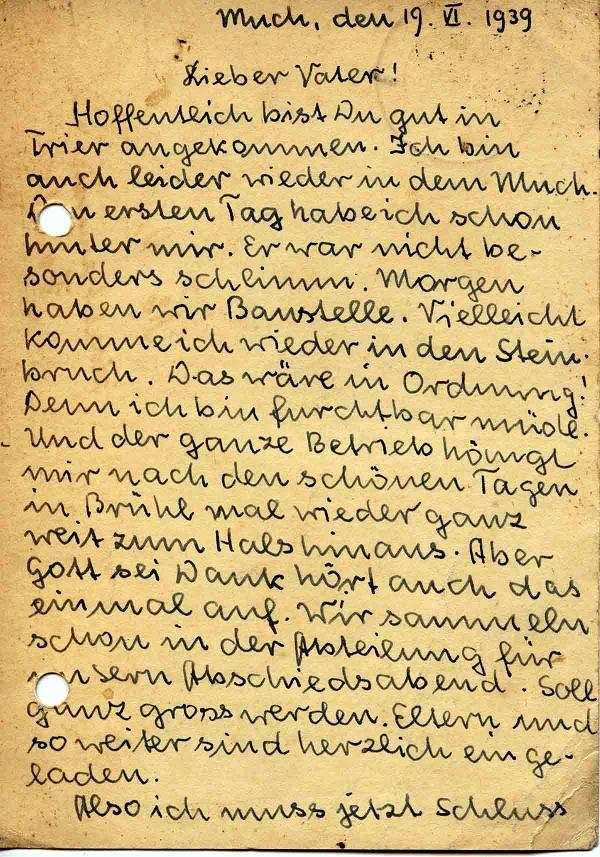 Much, den 19. VI. 1939
Lieber Vater!
Hoffentlich bist Du gut in
Trier angekommen. Ich bin
auch leider wieder in dem Much.
Den ersten Tag habe ich schon
hinter mir. Er war nicht be-
sonders schlimm. Morgen
haben wir Baustelle. Vielleicht
komme ich wieder in den Stein-
bruch. Das wäre in Ordnung!
Denn ich bin furchtbar müde.
Und der ganze Betrieb hängt
mir nach den schönen Tagen
in Brühl mal wieder ganz
weit zum Hals hinaus. Aber
Gott sei Dank hört auch das
einmal auf. Wir sammeln
schon in der Abteilung für
unsern Abschiedsabend. Soll
ganz gross werden. Eltern und
so weiter sind herzlich einge-
laden.
Also ich muss jetzt Schluss